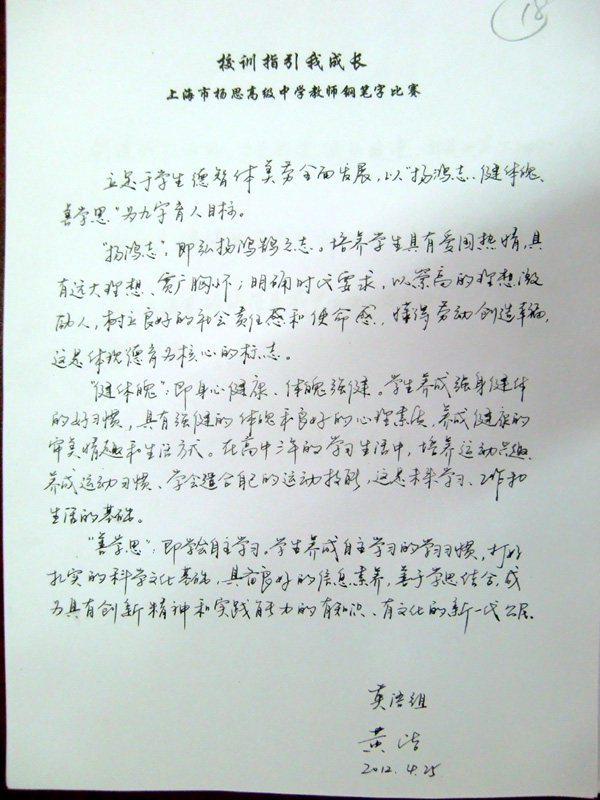 18
校训指引我成长
上海市杨思高级中学教师钢笔字比赛
立足于学生德智体美劳全面发展，以“扬鸿志、健体魄、
善学思”为九字育人目标。
“扬鸿志”：即弘扬鸿鹄之志。培养学生具有爱国热情，具
有远大理想、宽广胸怀；明确时代要求，以崇高的理想激
励人，树立良好的社会责任感和使命感，懂得劳动创造幸福，
这是体现德育为核心的标志。
“健体魄”：即身心健康、体魄强健。学生养成强身健体
的好习惯，具有强健的体魄和良好的心理素质，养成健康的
审美情趣和生活方式。在高中三年的学习生活中，培养运动兴趣、
养成运动习惯、学会适合自己的运动技能，这是未来学习、工作和
生活的基础。
“善学思”：即学会自主学习。学生养成自主学习的学习习惯，打好
扎实的科学文化基础，具备良好的信息素养，善于学思结合，成
为具有创新精神和实践能力的有知识、有文化的新一代公民。
英语组
黄洁
2012.4.25